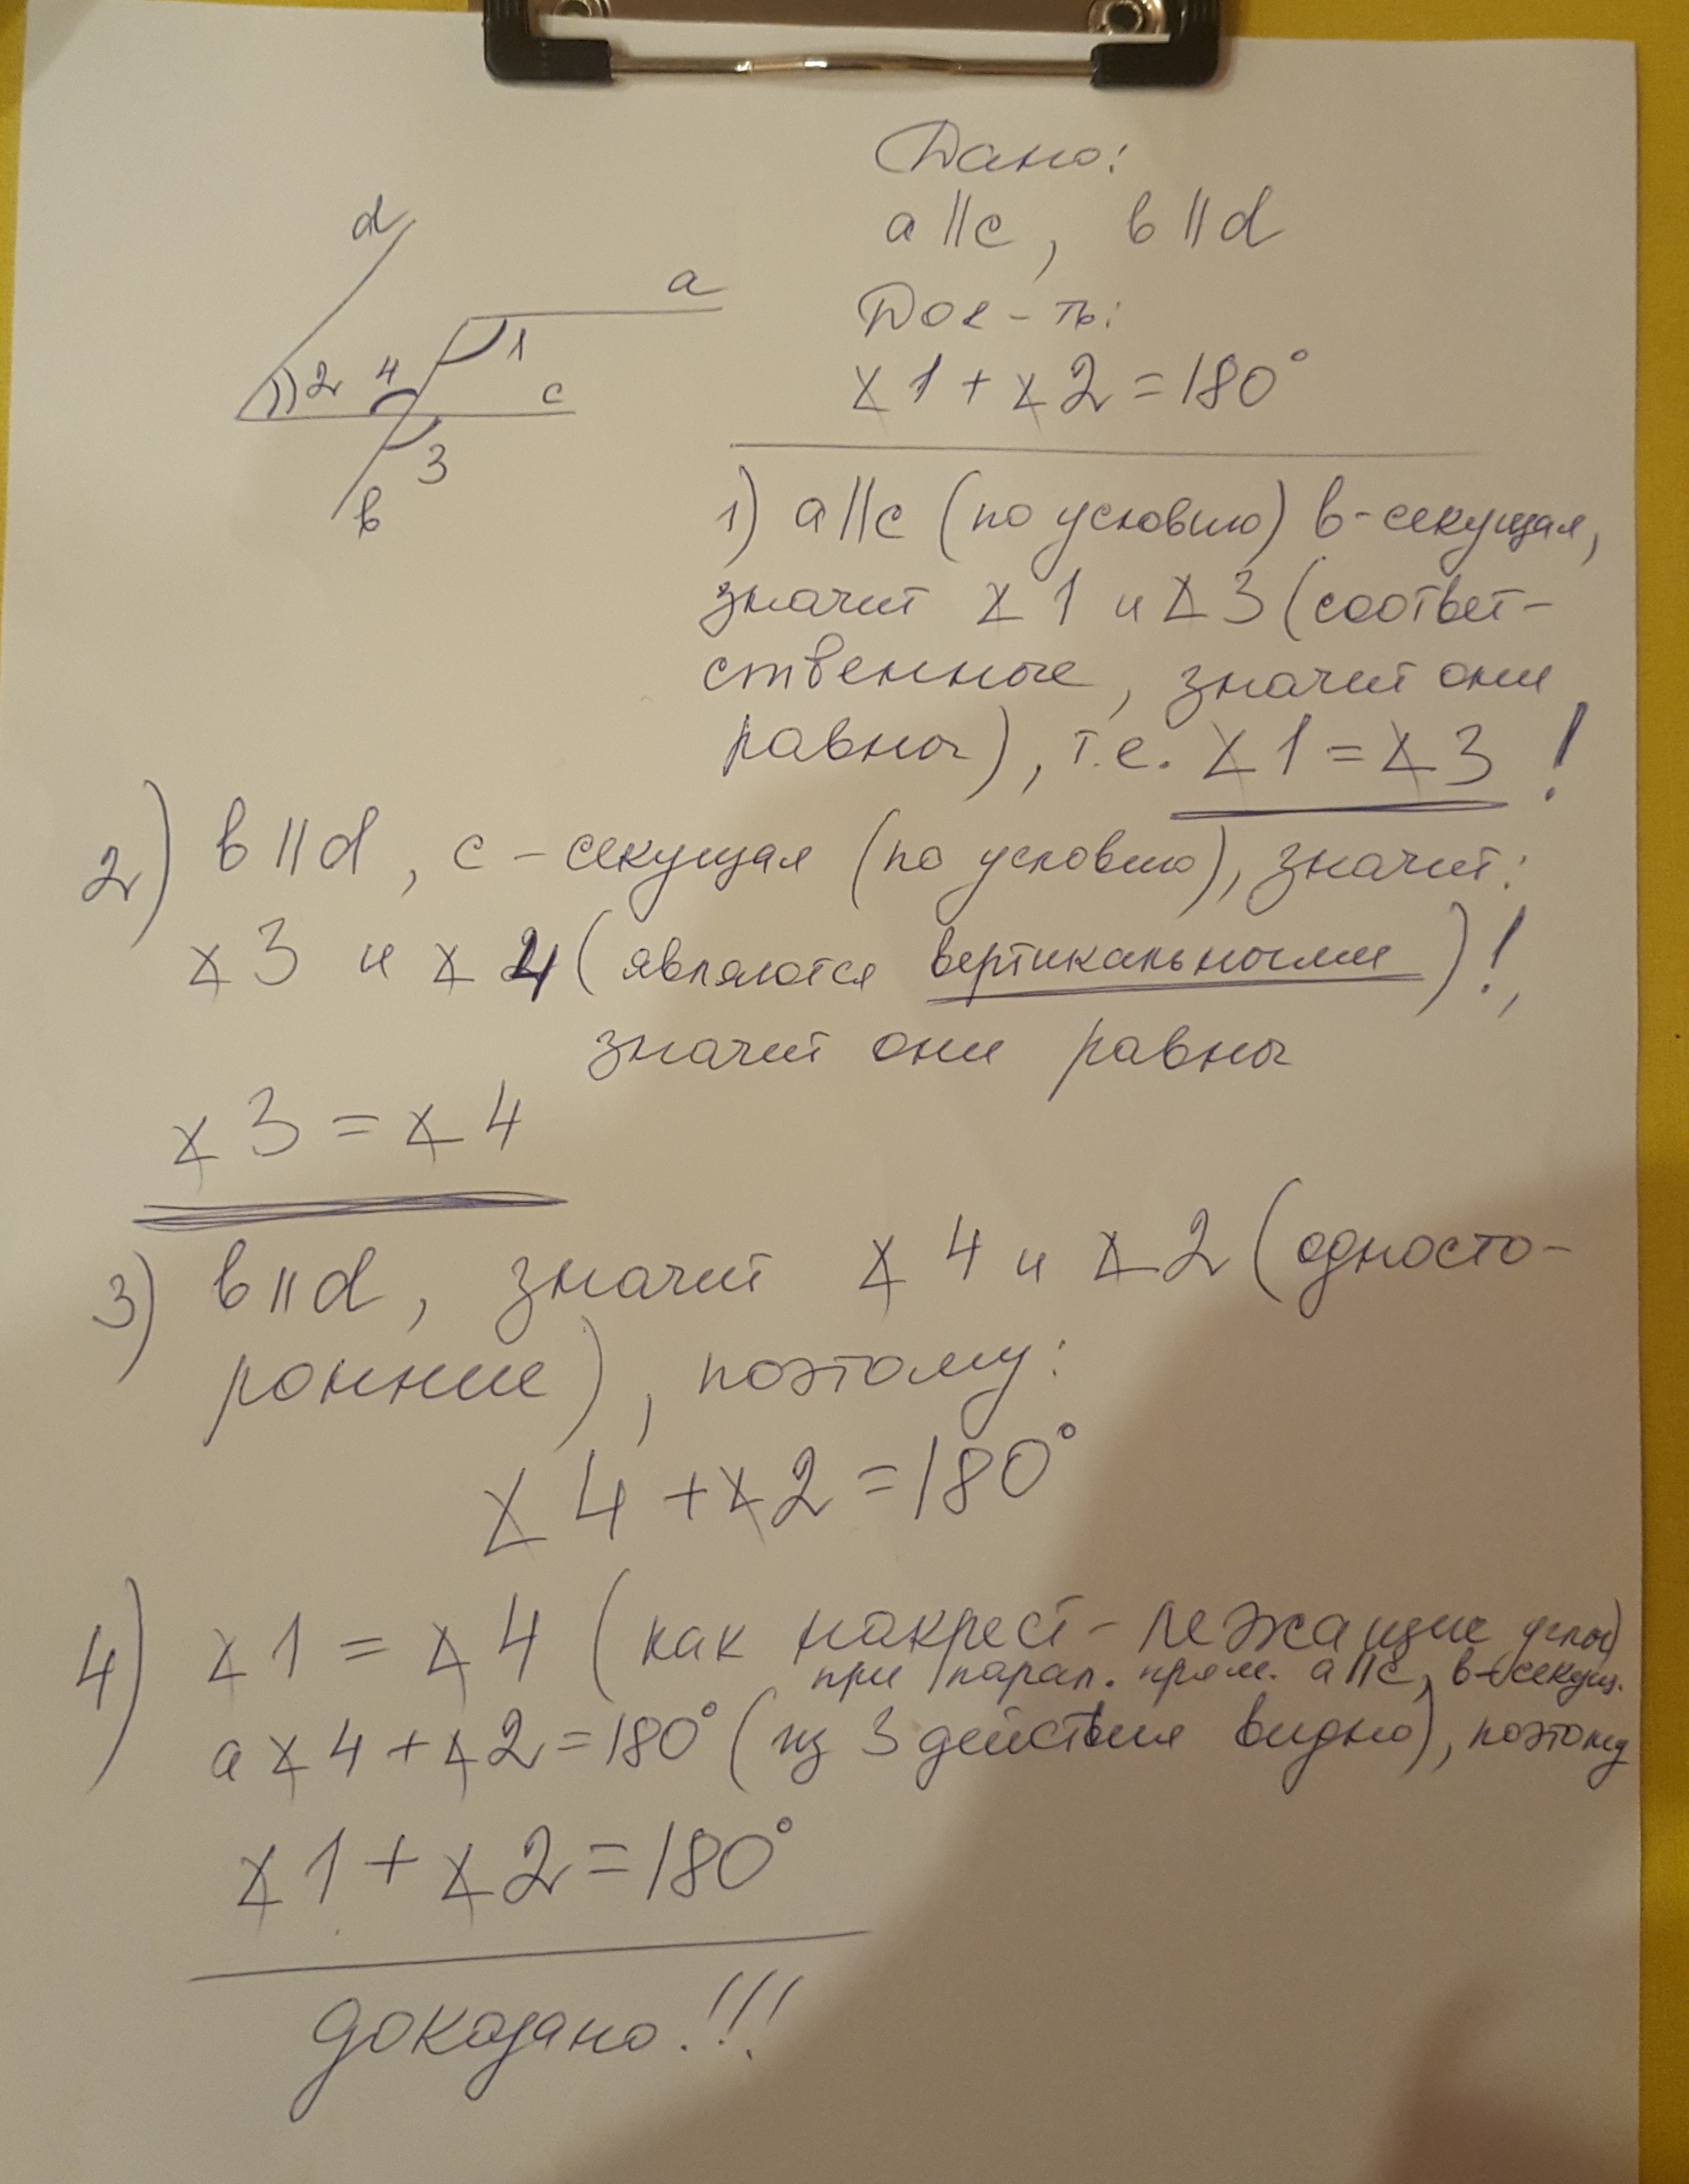 Дано:
a||c, b||d
Док-ть:
∠1+∠2=180°
d
a
1
2 4
c
3
b
1) a||c (по условию) b-секущая,
значит ∠1 и ∠3 (соответ-
ственные, значит они
равны), т.е. ∠1=∠3!
2) b||d, c-секущая (по условию), значит:
∠3 и ∠4 (являются вертикальными)!,
значит они равны
∠3=∠4
3) b||d, значит ∠4 и ∠2 (односто-
ронние), поэтому:
∠4+∠2=180°
4) ∠1=∠4 (как накрест-лежащие углы)
при парал. прям. a||c, b-секущ.
а ∠4+∠2=180° (из 3 действия видно), поэтому
∠1+∠2=180°
доказано!!!